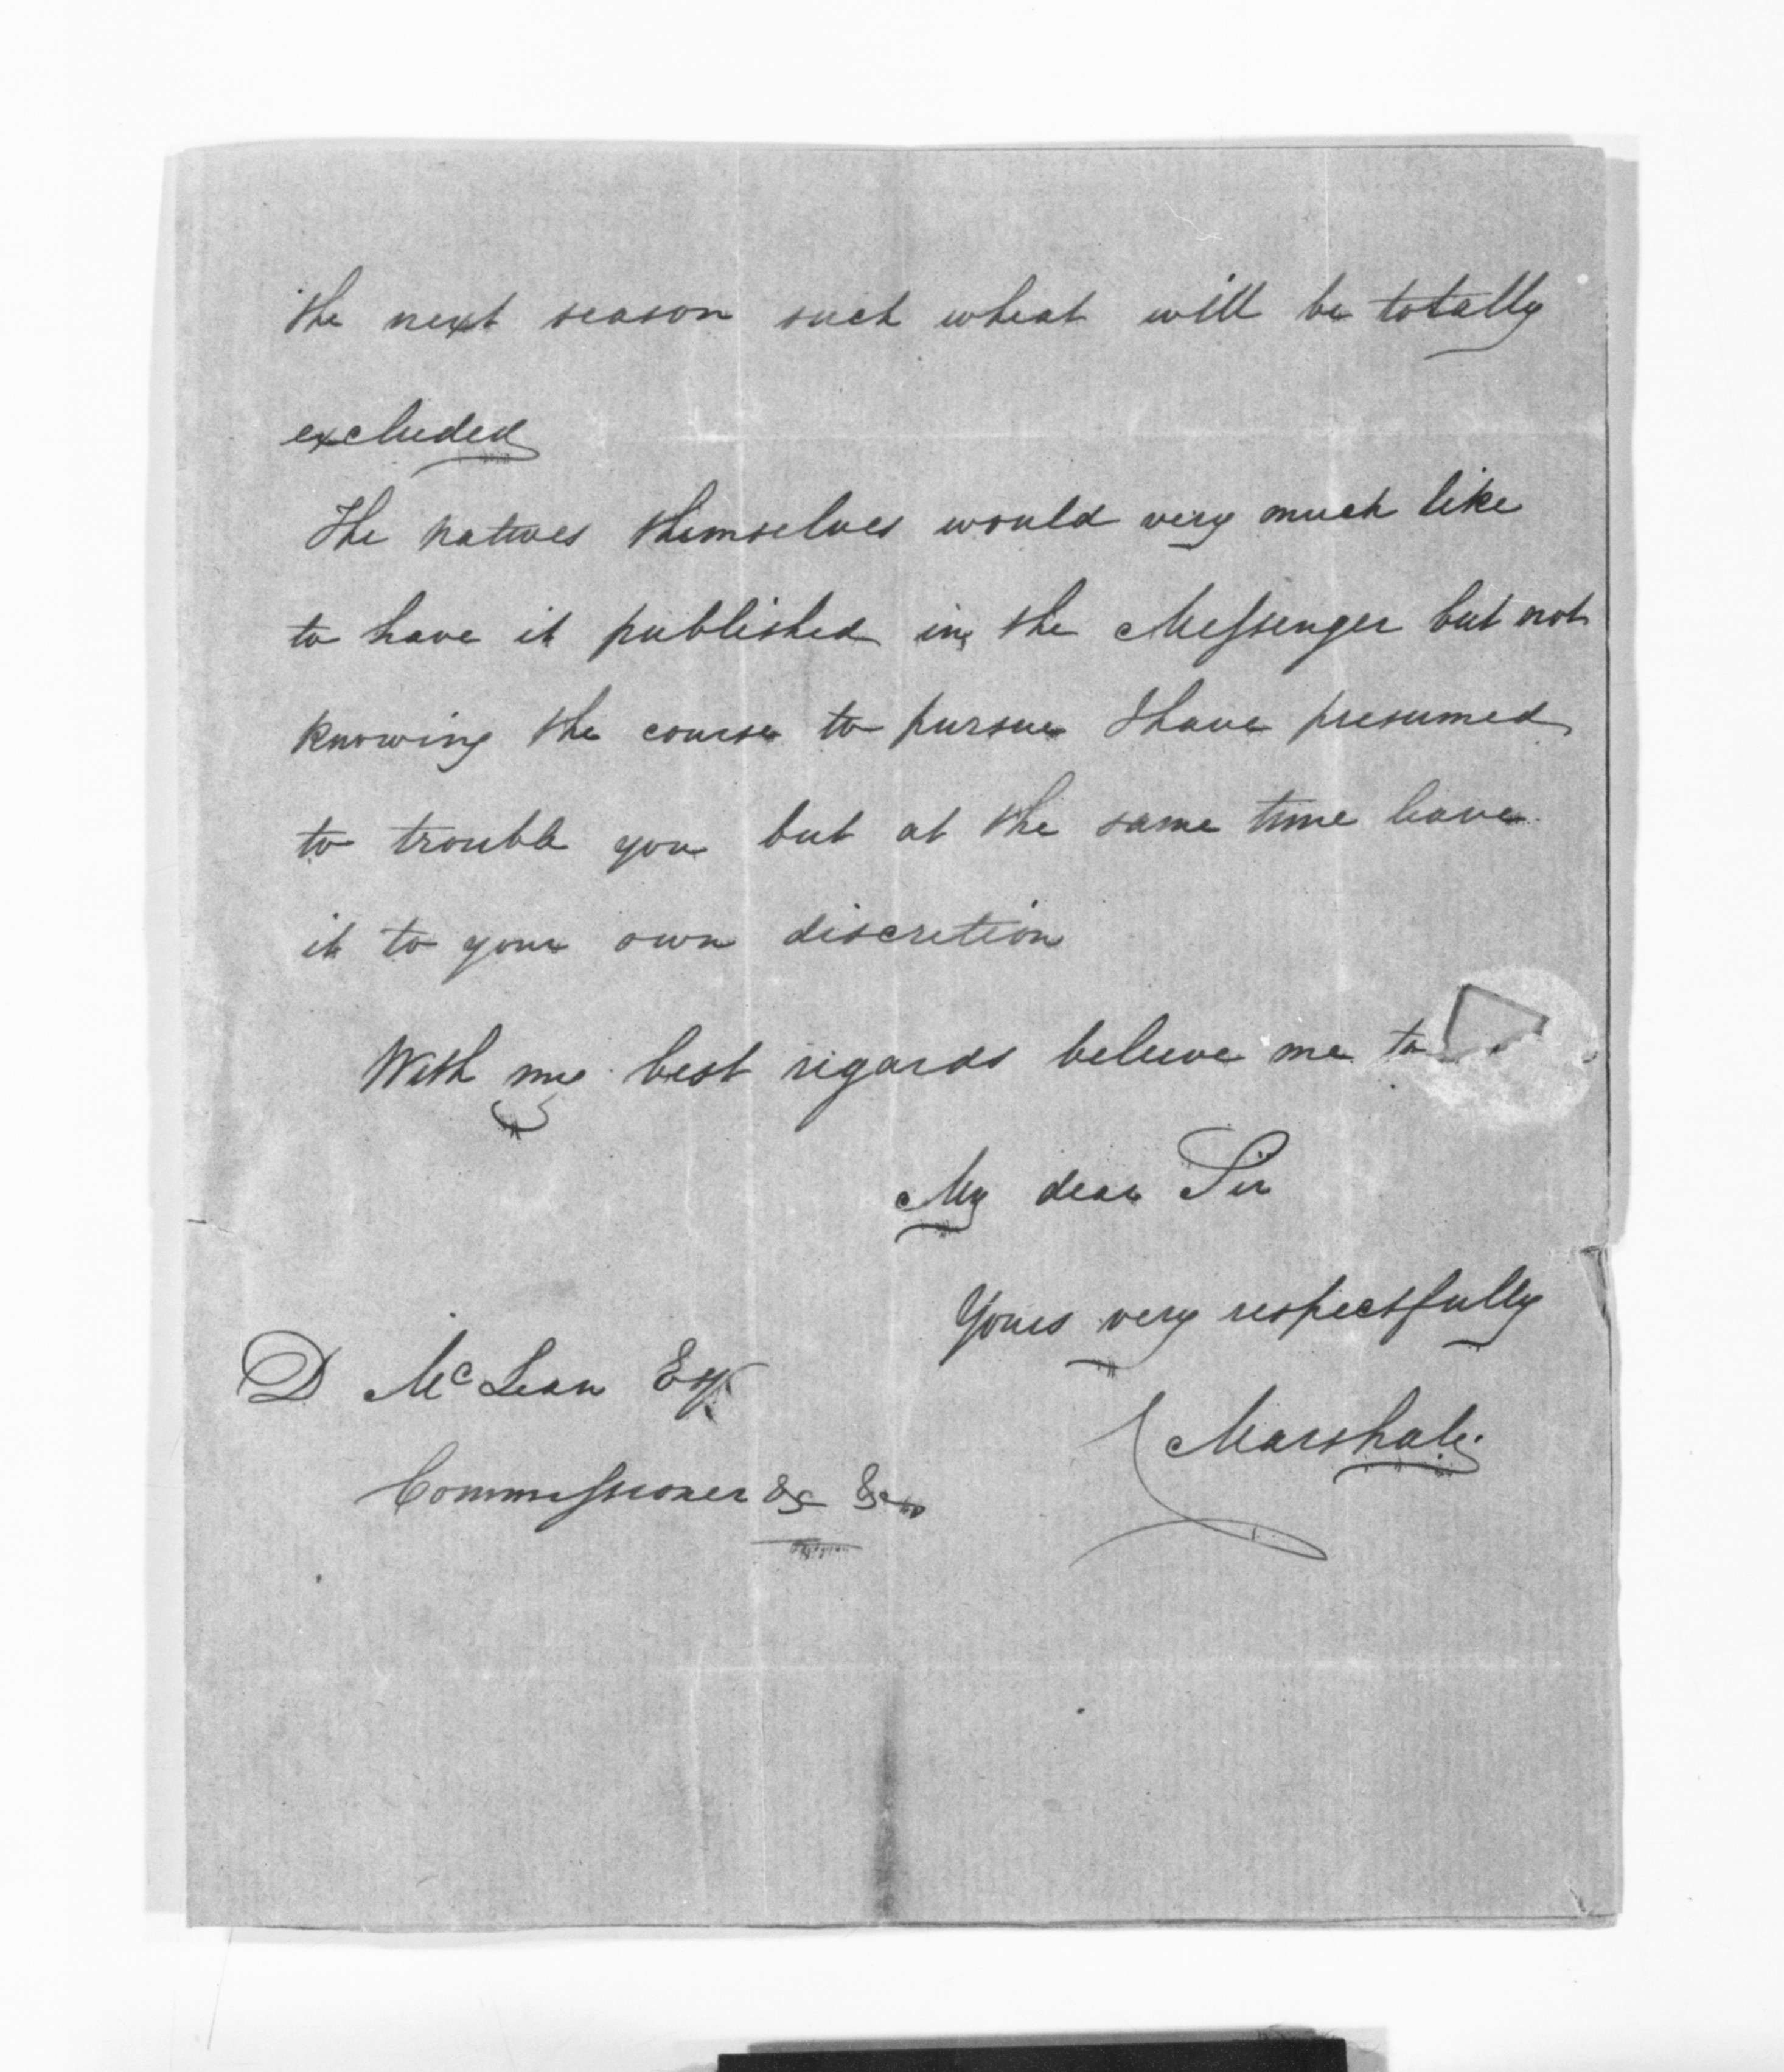 the next season such wheat will be totally
excluded
The natives themselves would very much like
to have it published in the Messenger but not
knowing the course to pursue I have presumed
to trouble you but at the same time leave
it to your own discretion
With my best regards believe me to
My dear Sir
Yours very respectfully
D McLean Esq
Marshall
Commissioner &c &c